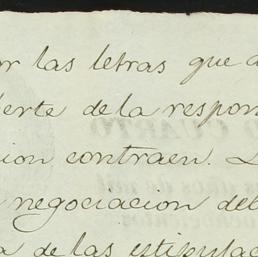 or las letras que a
erte de la respon
cion contraen. L
negociacion del
a de las estipulac